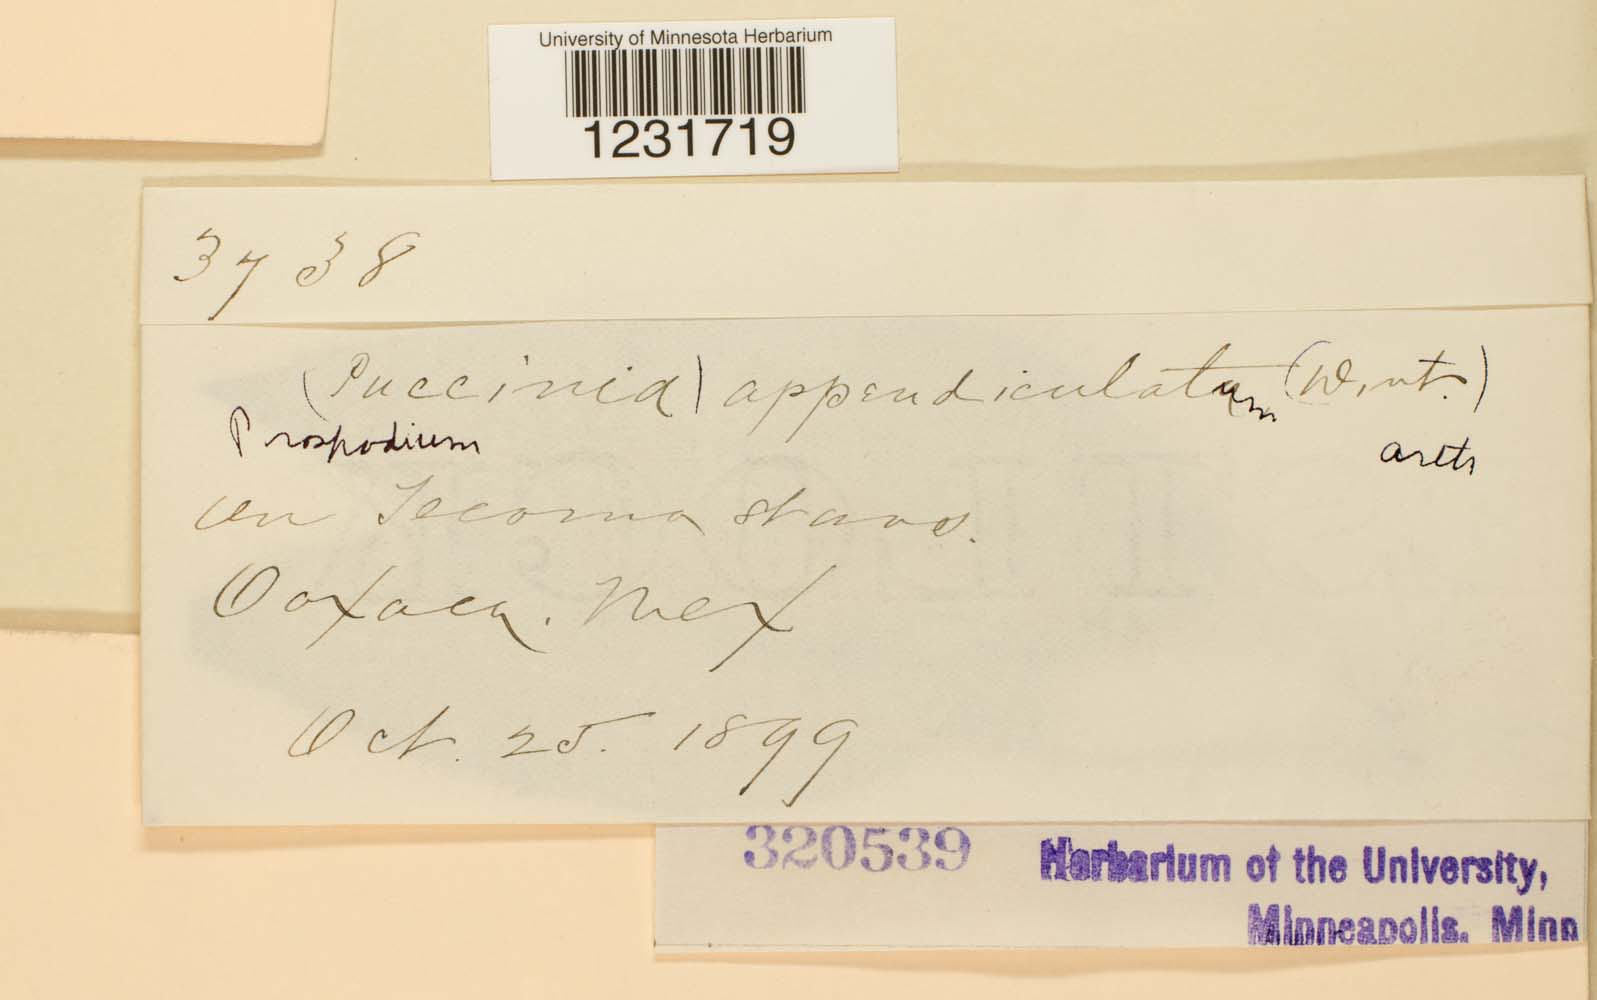 University of Minnesota Herbarium
1231719
3738
(Puccinia) appendiculatum (Wint.)
Prospodium arth
on Tecoma stans.
Oaxaca. Mex
Oct. 25. 1899
320539
Herbarium of the University,
Minneapolis, Minn